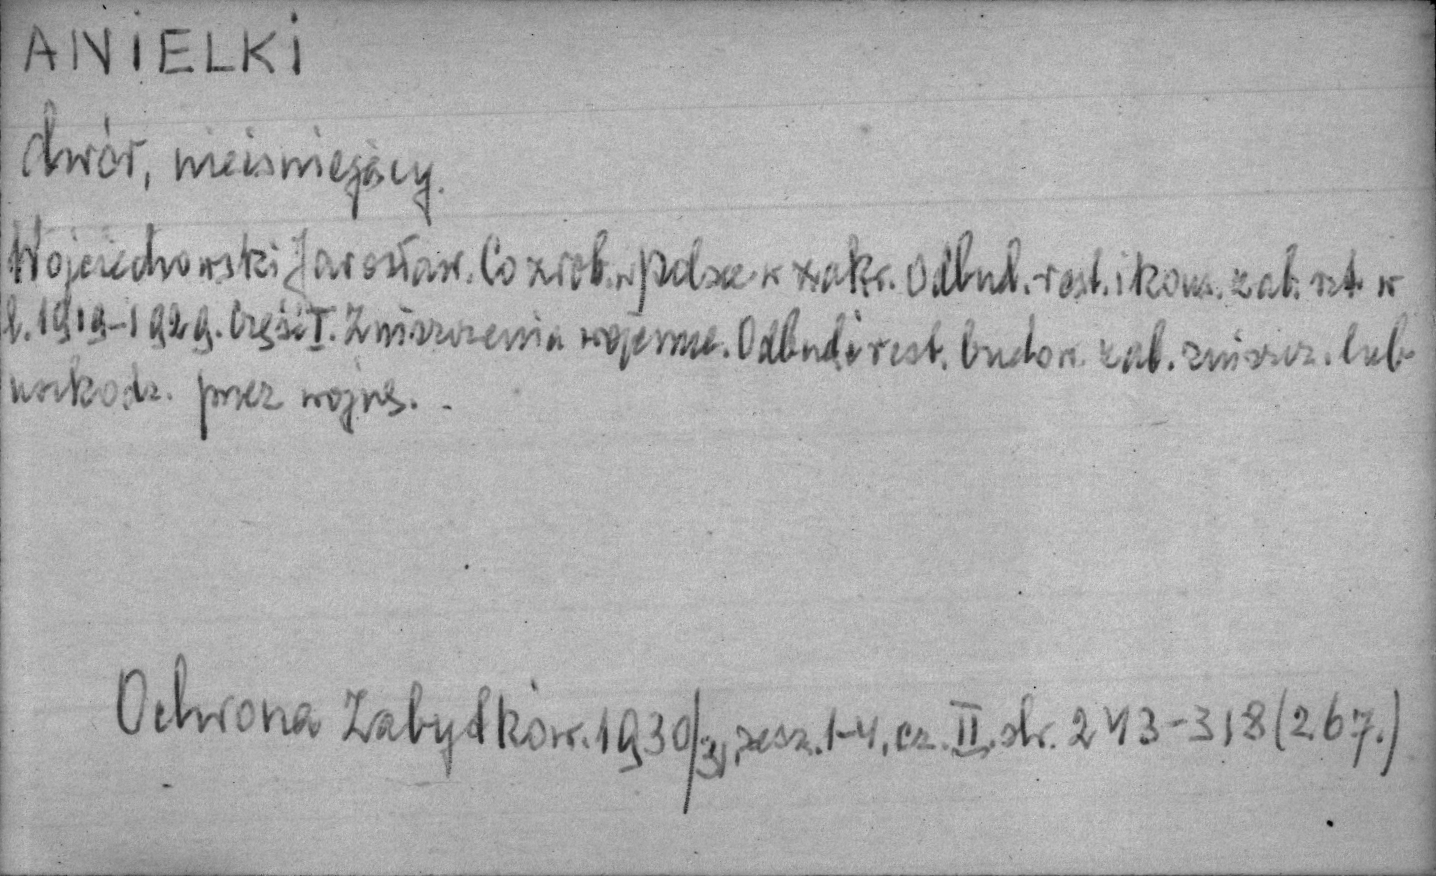 ANIELKI
dwór, nieistniejący.
Wojciechowski Jarosław. Co zrob. w Polsce w zakr. Odbud. rest. i kons. zab. szt. w
l. 1919-1929. Część I. Zniszczenia wojenne. Odbud i rest. budow. zab. zniszcz. lub
uszkodz. przez wojnę.
Ochrona Zabytków. 1930/31, zesz. 1-4, cz. II, str. 243-318 (267.)